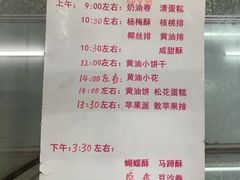 上午： 9:00左右： 奶油卷 清蛋糕
10:30左右： 杨梅酥 核桃排
椰丝排 黄油排
10:30左右： 咸甜酥
12:00左右： 黄油小饼干
14:00左右 黄油小花
14:00左右： 黄油饼 松花蛋糕
13:30左右： 苹果派 散苹果排
下午：3:30左右：
蝴蝶酥 马蹄酥
豆沙卷